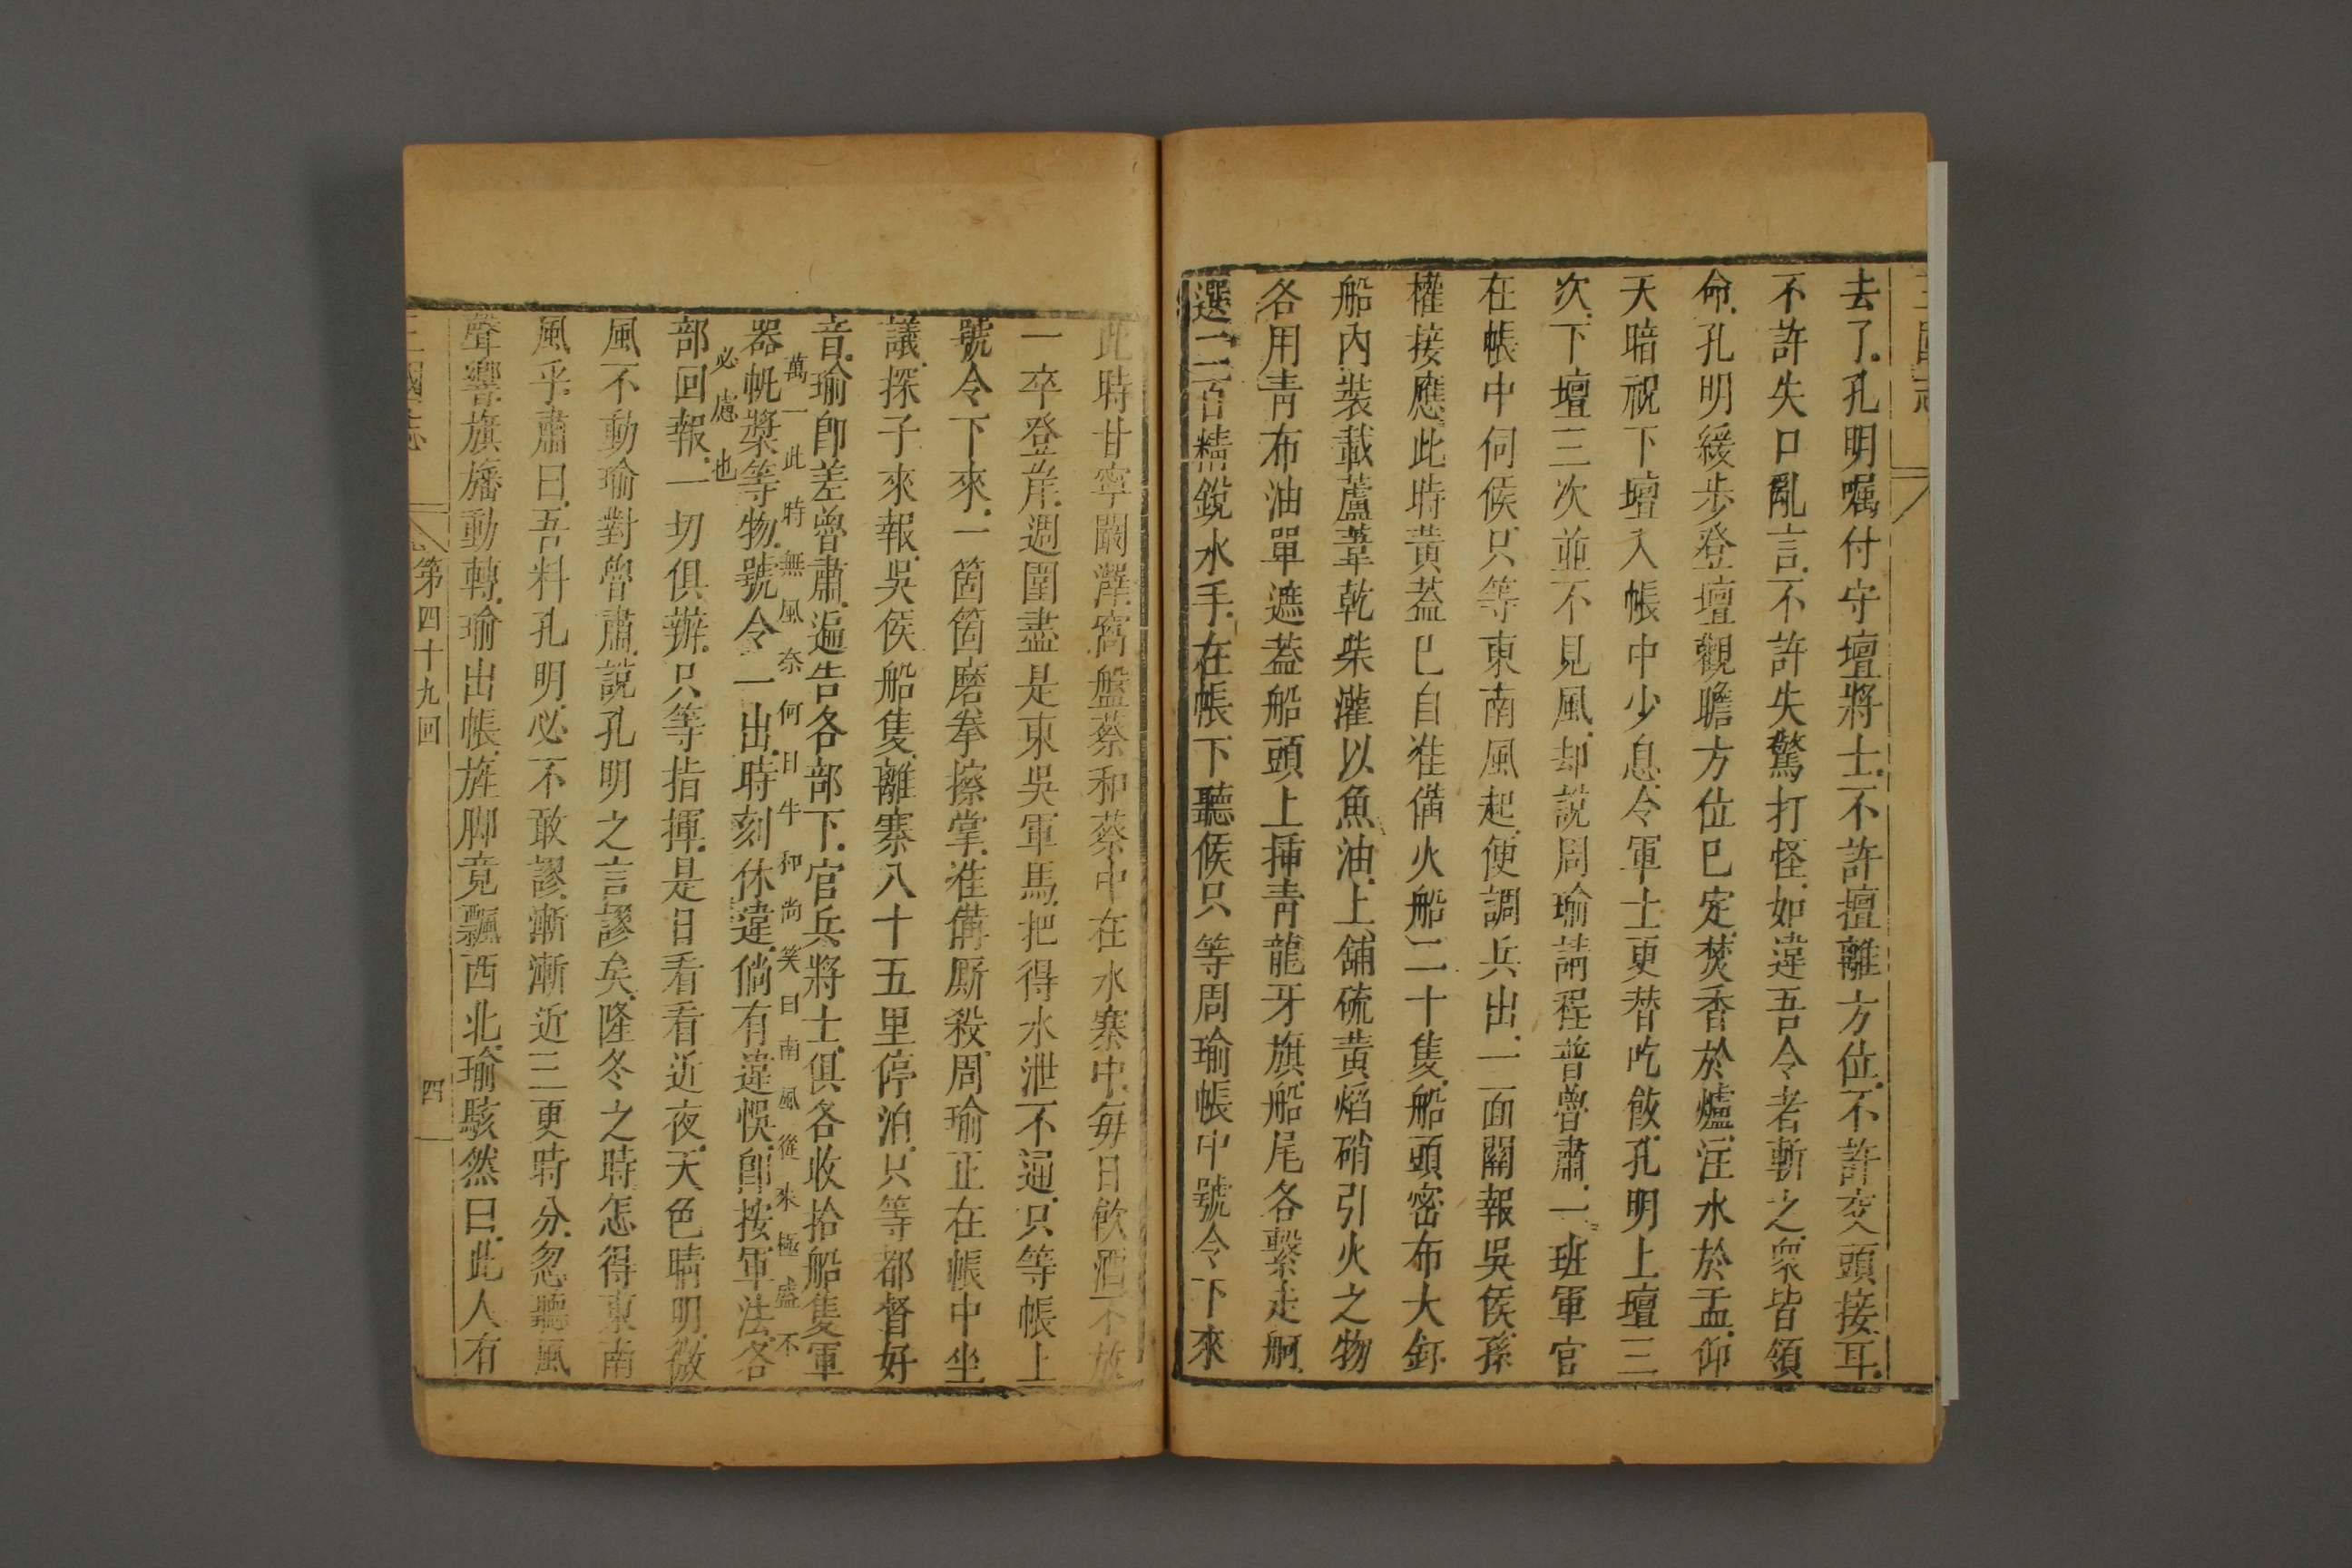 三國志
去了孔明嘱付守壇將士不許擅離方位不許交頭接耳
不許失口亂言不許失驚打怪如違吾令者斬之衆皆領
命孔明緩步登壇觀瞻方位已定焚香於爐注水於盂仰
天暗祝下壇入帳中少息令軍士更替吃飯孔明上壇三
次下壇三次並不見風却説周瑜請程普魯肅一班軍官
在帳中伺候只等東南風起便調兵出一面關報吳侯孫
權接應此時黃蓋已自准備火船二十隻船頭密布大釘
船內裝載蘆葦乾柴灌以魚油上鋪硫黃焰硝引火之物
各用青布油單遮蓋船頭上插青龍牙旗船尾各繫走舸
選二百精銳水手在帳下聽候只等周瑜帳中號令下來
此時甘寧闞澤窩盤蔡和蔡中在水寨中每日飲酒不放
一卒登岸週圍盡是東吳軍馬把得水泄不通只等帳上
號令下來一箇箇磨拳擦掌准備厮殺周瑜正在帳中坐
議探子來報吳侯船隻離寨八十五里停泊只等都督好
音瑜卽差魯肅遍告各部下官兵將士俱各收拾船隻軍
萬一此時無風奈何日牛抑尚笑曰南風從來極盛不
器帆槳等物號令一出時刻休違倘有違悞卽按軍法各
必慮也
部回報一切俱辦只等指揮是日看看近夜天色晴明微
風不動瑜對魯肅説孔明之言謬矣隆冬之時怎得東南
風乎肅曰吾料孔明必不敢謬漸漸近三更時分忽聽風
聲響旗旛動轉瑜出帳旌脚竟飄西北瑜駭然曰此人有
三國志 第四十九回 四